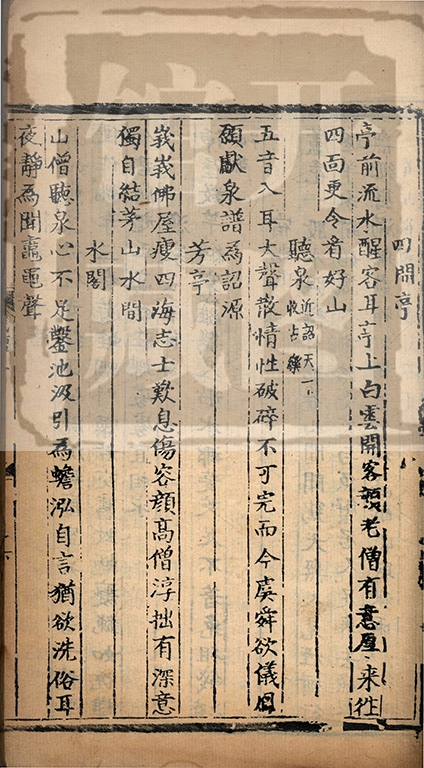 四開亭
亭前流水醒客耳亭上白雲開客顏老僧有意來往
四面更令看好山
聽泉近詔天下收古樂
五音入耳大聲散情性破碎不可完而今虞舜欲儀
願獻泉譜為詔源
芳亭
峩峩佛屋瘦四海志士歎息傷容顏高僧淳拙有深意
獨自結茅山水間
水閣
山僧聽泉心不足鑿池汲引為蟾泓自言猶欲洗俗耳
夜靜為聞鼃黽聲